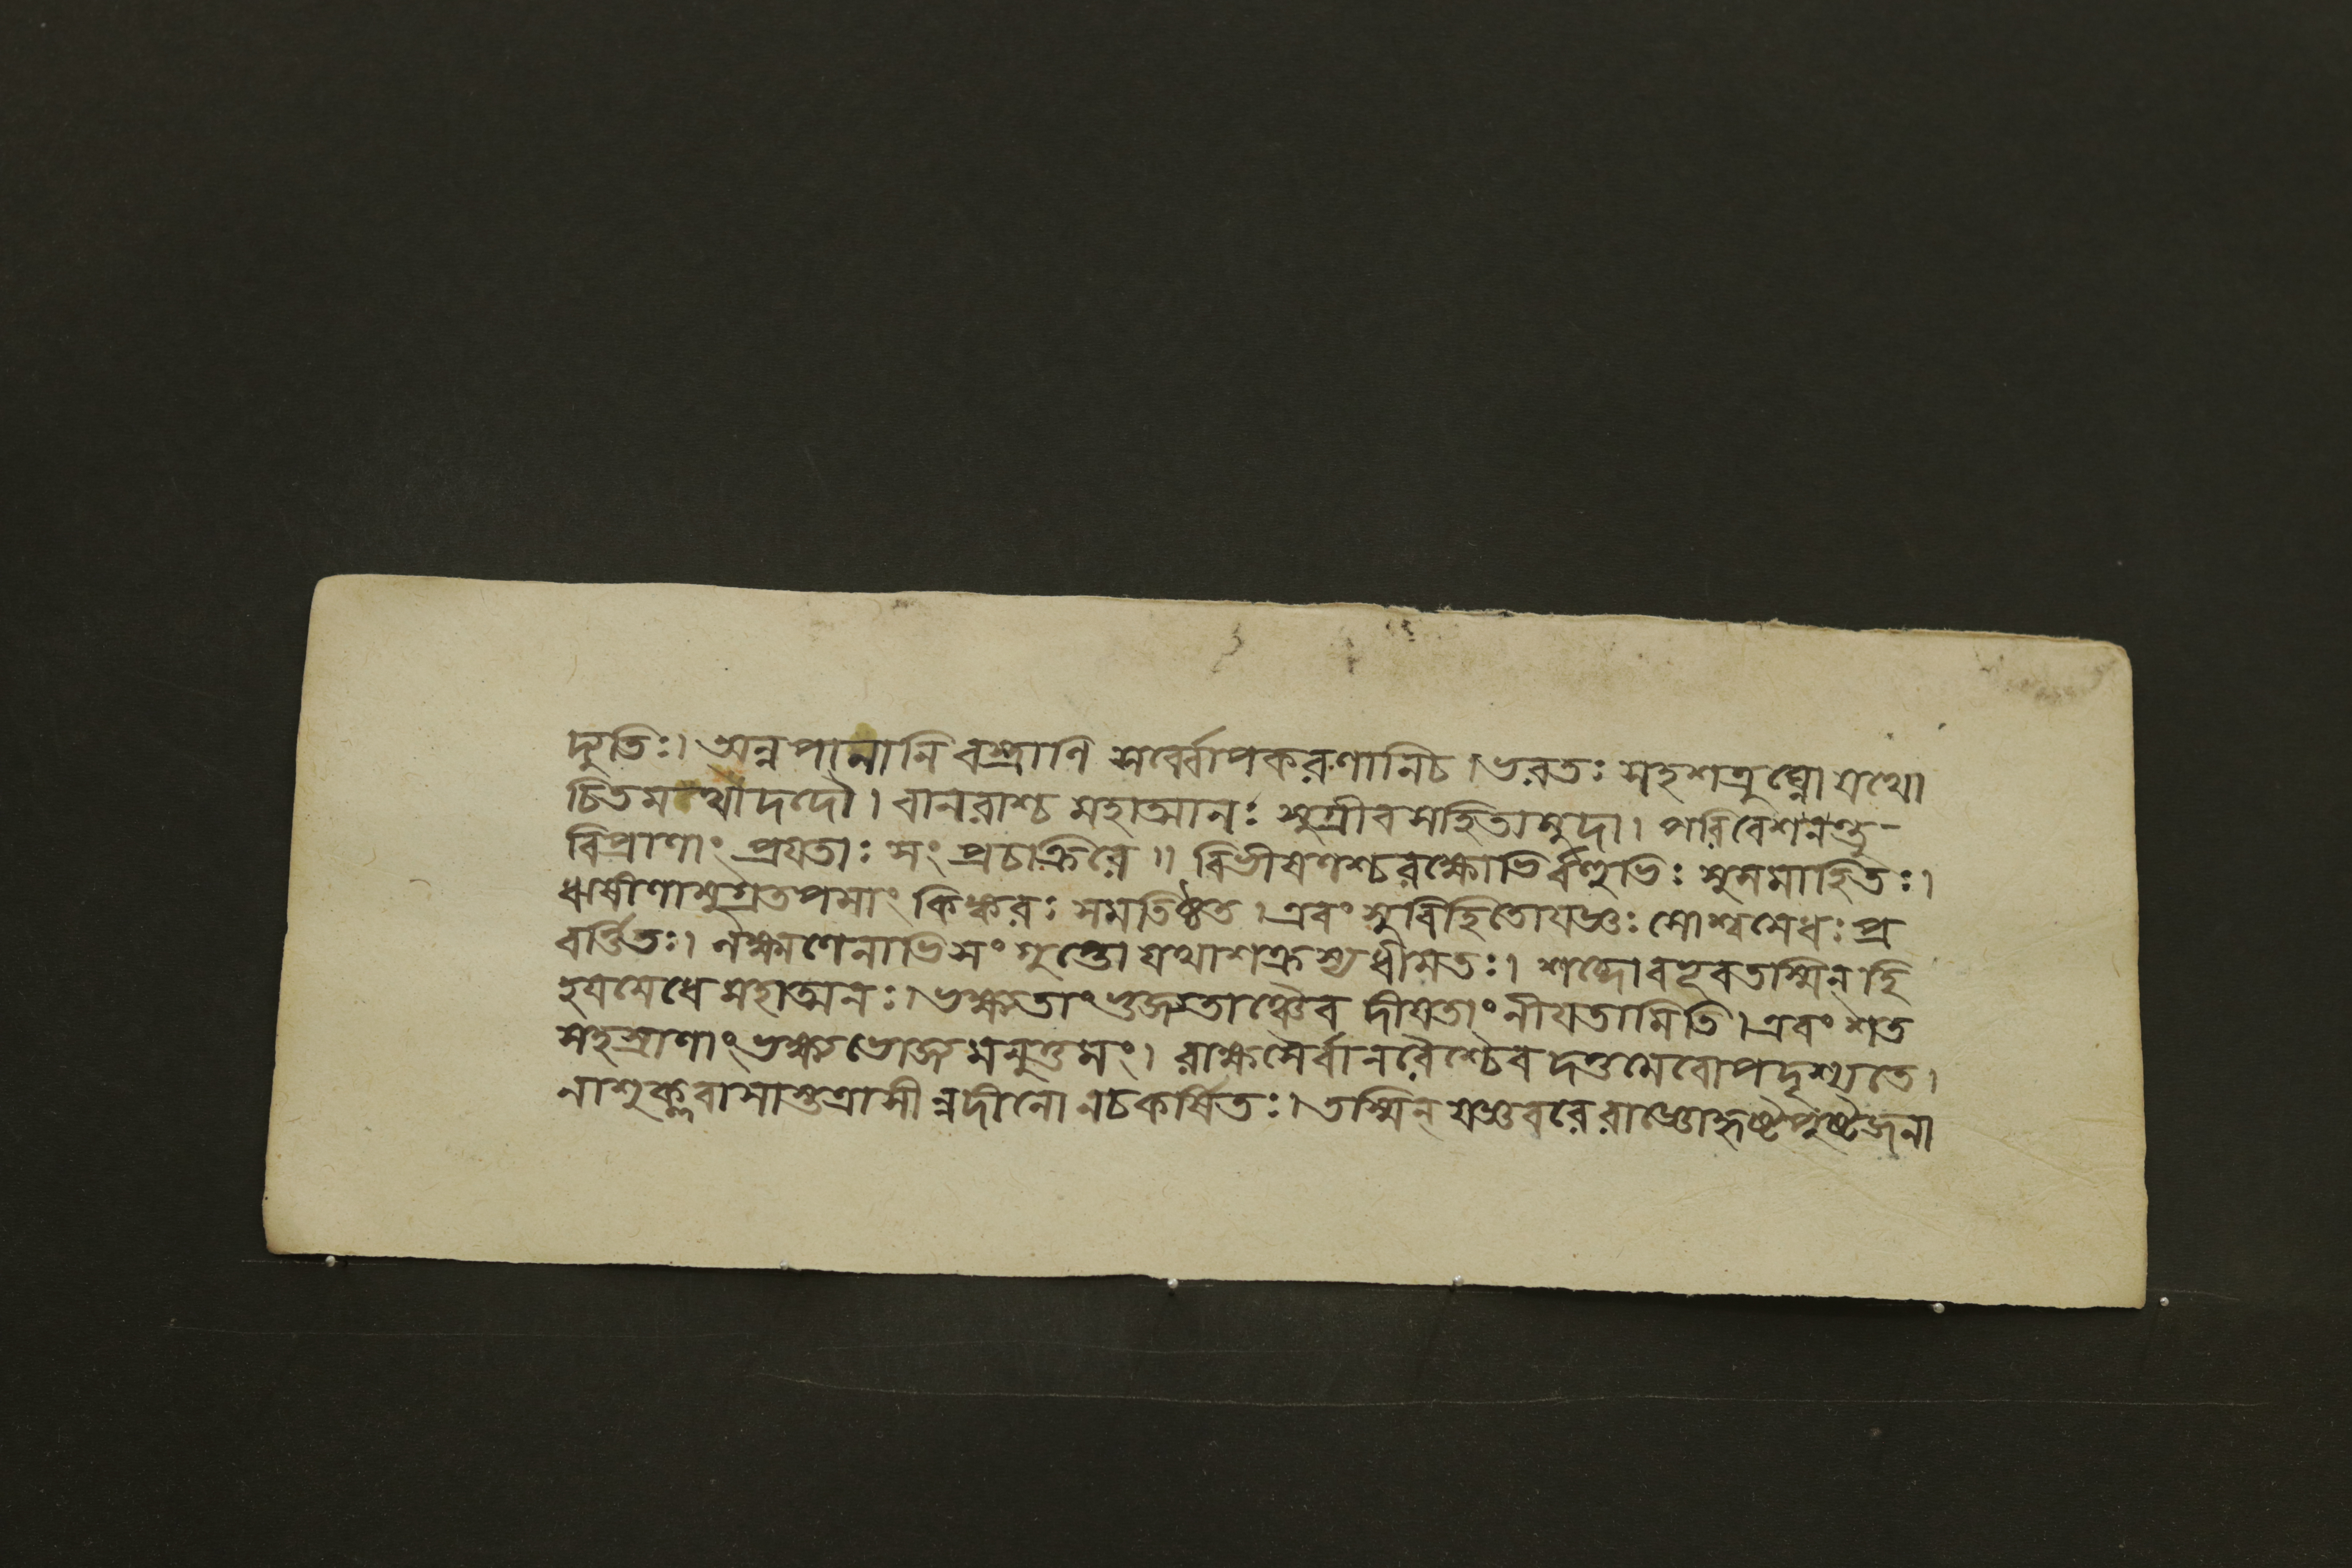 দ্যুতিঃ। অন্নপানানি বস্ত্রাণি সর্ব্বোপকরণানিচ। ভরতঃ সহশত্রুঘ্নো যথো
চিতমথো দদৌ। বানরাশ্চ মহাত্মানঃ সুগ্রীবসহিতা মুদা। পরিবেশনন্তু-
বিপ্রাণাং প্রযতাঃ সং প্রচাক্রিরে॥ বিভীষণশ্চ রক্ষোভির্বহুভিঃ সুসমাহিতঃ।
ঋষীণামুগ্রতপসাং কিঙ্করঃ সমতিষ্ঠত। এবং সুবিহিতো যজ্ঞঃ সোশ্বমেধঃ প্র
বর্ত্তিতঃ। লক্ষ্মণেনাভিসংগুপ্তো যথাশক্রস্য ধীমতঃ। শব্দো বহুবতস্মিন্ হি
হযমেধে মহাত্মনঃ। ভক্ষ্যতাং ভুজ্যতাঞ্চৈব দীযতাং নীযতামিতি। এবং শত
সহস্রাণাং ভক্ষ্যভোজ্যমনুত্তমং। রাক্ষসৈর্বানরৈশ্চৈব দত্তমেবোপদৃশ্যতে।
নাশুক্লবাসাস্তত্রাসীন্নদীনো নচকর্ষিতঃ। তস্মিন্ যজ্ঞবরে রাজ্ঞো হৃষ্টপুষ্টজনা